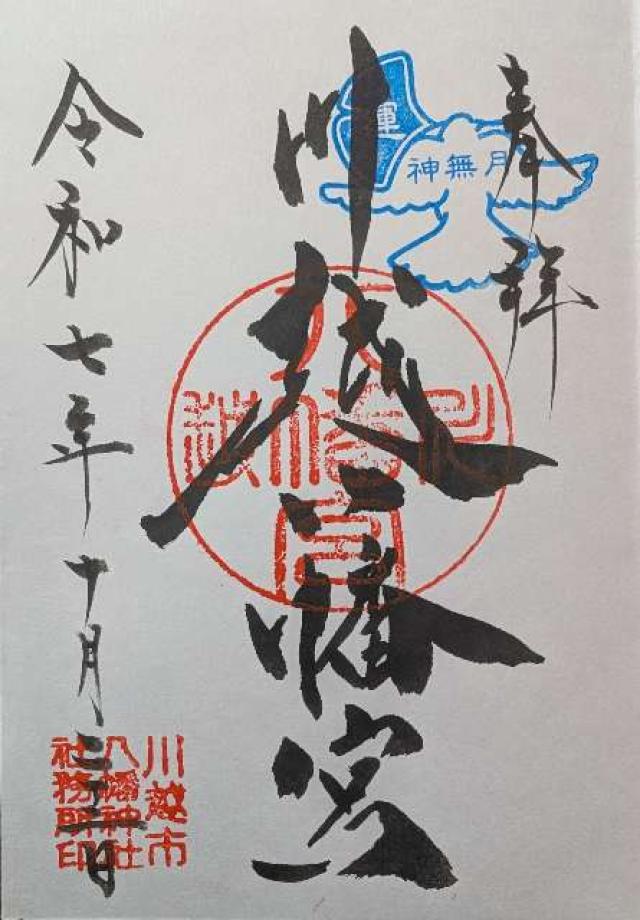 奉拝
神無月
運
川越八幡宮
川越八幡宮
令和七年十月
川越市
八幡神社
社務所印